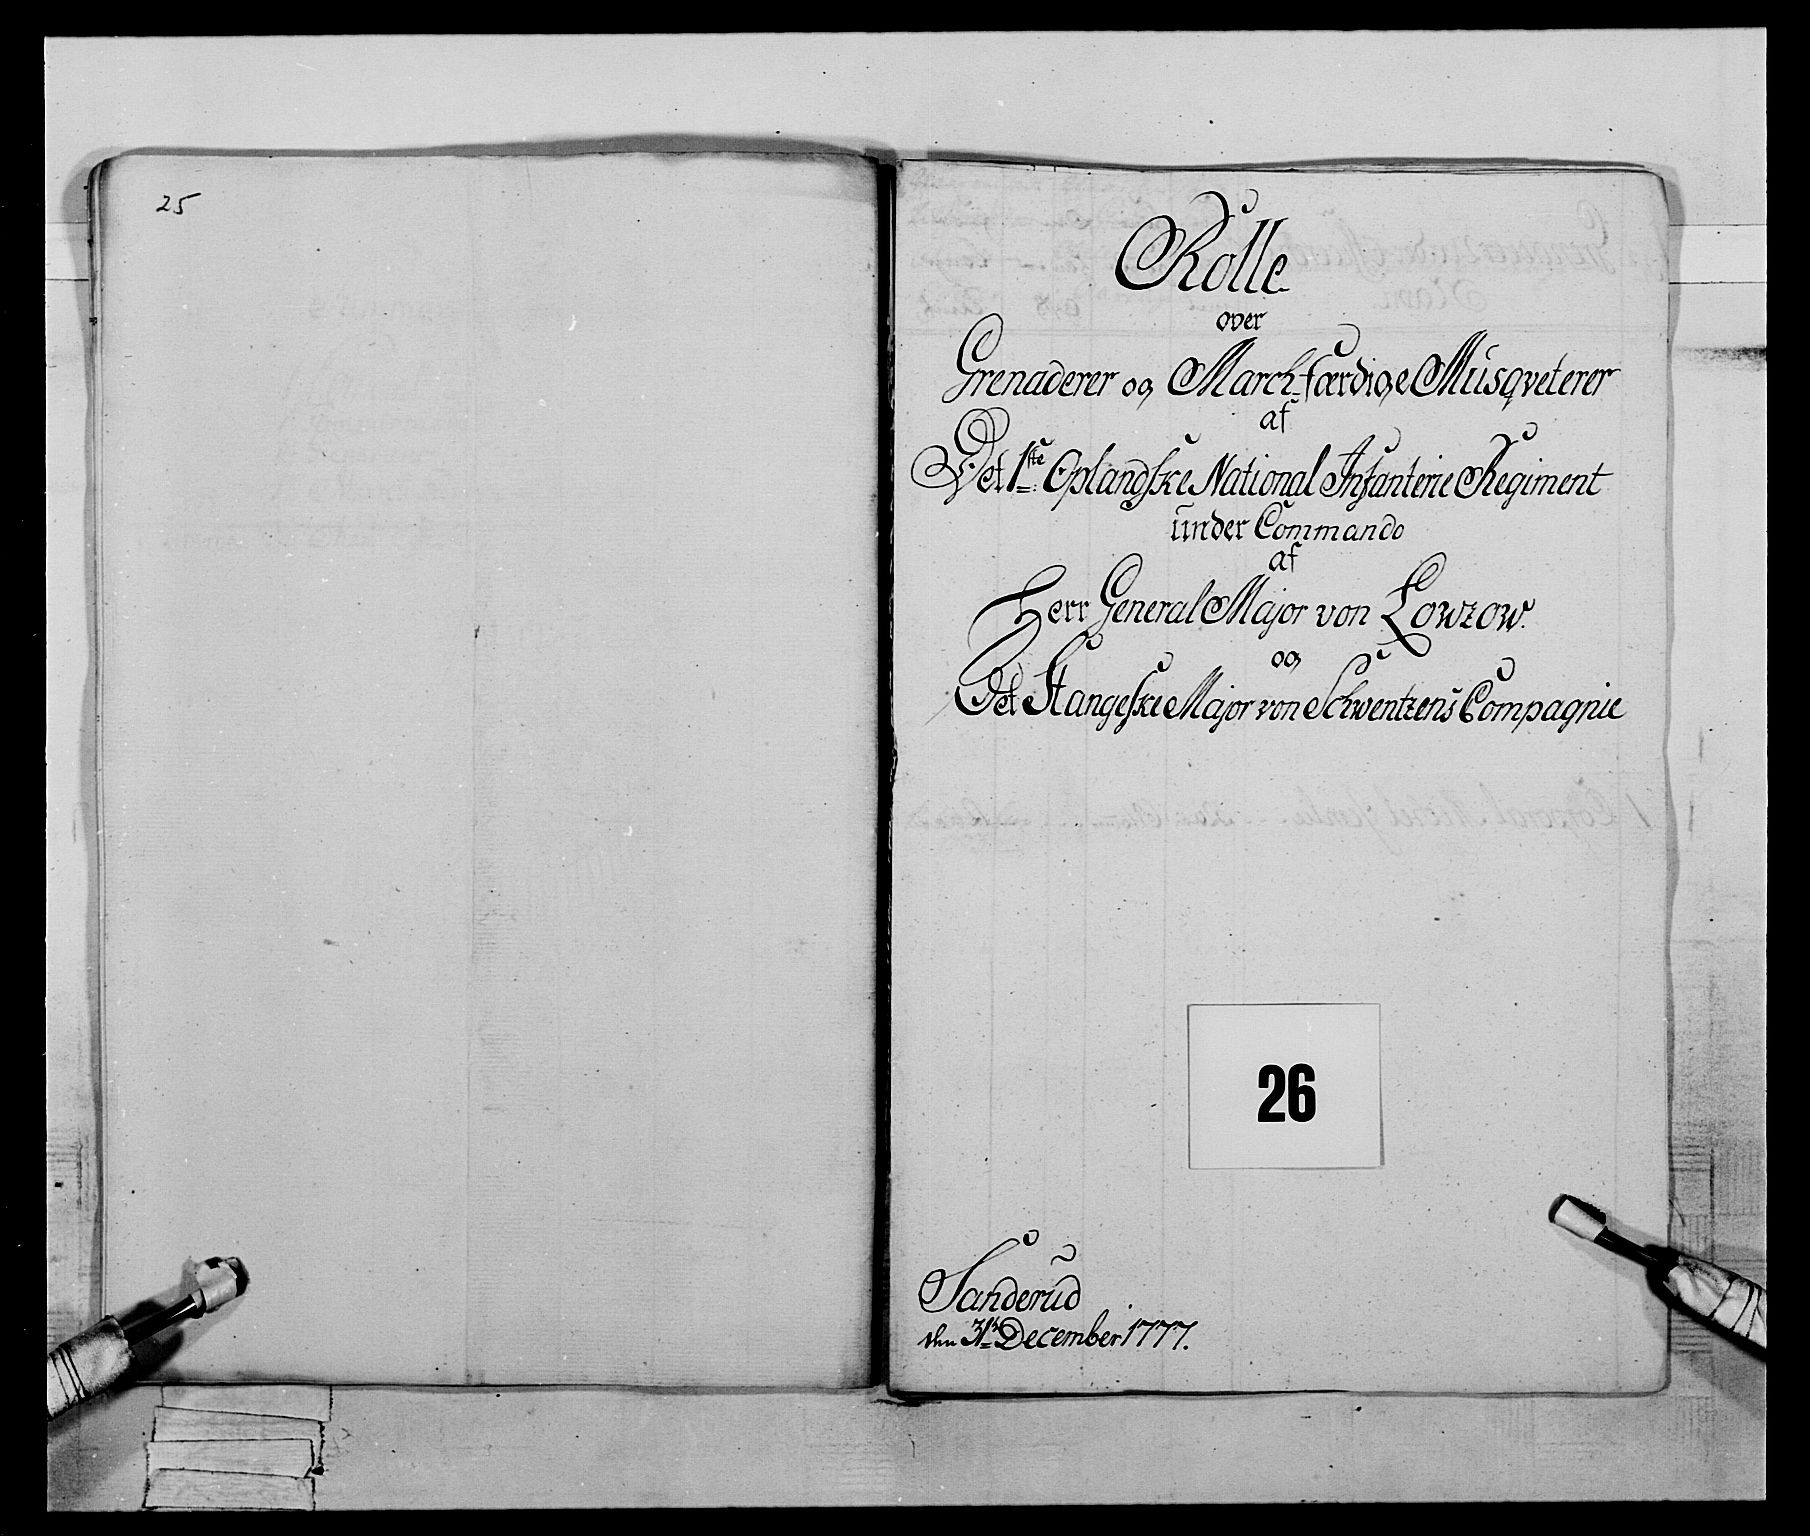 25
Rolle
over
Grenaderer og March-færdige Musqveterer
af
Det 1ste Oplandske National Infanterie Regiment
under Commando
af
Herr General Major von Lowzow.
og
Det Stangeske Major von Schwentzens Compagnie
26
Sanderud
den 31te December 1777.